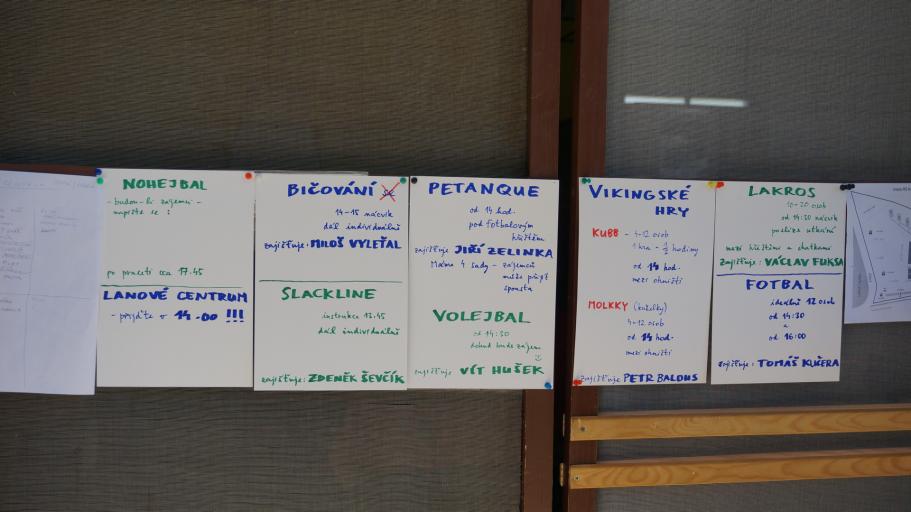 NOHEJBAL
- budou-li zájemci -
napište se :
po practi cca 17.45
LANOVÉ CENTRUM
- přijďte v 14.00 !!!
BIČOVÁNÍ SE
14-15 nácvik
dál individuálně
zajišťuje: MILOŠ VYLEŤAL
SLACKLINE
instrukce 13.45
dál individuálně
zajišťuje: ZDENĚK ŠEVČÍK
PETANQUE
od 14 hod.
pod fotbalovým
hřištěm
zajišťuje JIŘÍ ZELINKA
Máme 4 sady - zájemců
může přijít
spousta
VOLEJBAL
od 14:30
dokud bude zájem
zajišťuje VÍT HUŠEK
VIKINGSKÉ
HRY
KUBB - 4-12 osob
1 hra - 1/2 hodiny
od 14 hod.
mezi ohništi
MOLKKY (kuželky)
4-12 osob
od 14 hod.
mezi ohništi
zajišťuje PETR BALOUS
LAKROS
10-20 osob
od 14:30 nácvik
posléze utkání
mezi hřištěm a chatkami
zajišťuje: VÁCLAV FUKSA
FOTBAL
ideálně 12 osob
od 14:30
a
od 16:00
zajišťuje: TOMÁŠ KUČERA